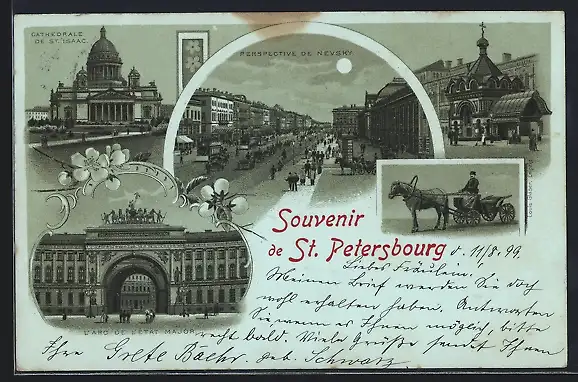 CATHEDRALE
DE ST. ISAAC.
PERSPECTIVE DE NEVSKY.
Souvenir
de St. Petersbourg
d. 11/8.99.
Liebes Fräulein!
Meinen Brief werden Sie doch
wohl erhalten haben. Antworten
Sie wenn es Ihnen möglich, bitte
recht bald. Viele Grüße sendet Ihnen
L'ARC DE L'ETAT MAJOR.
Ihre Grete Bachr. geb. Schwarz